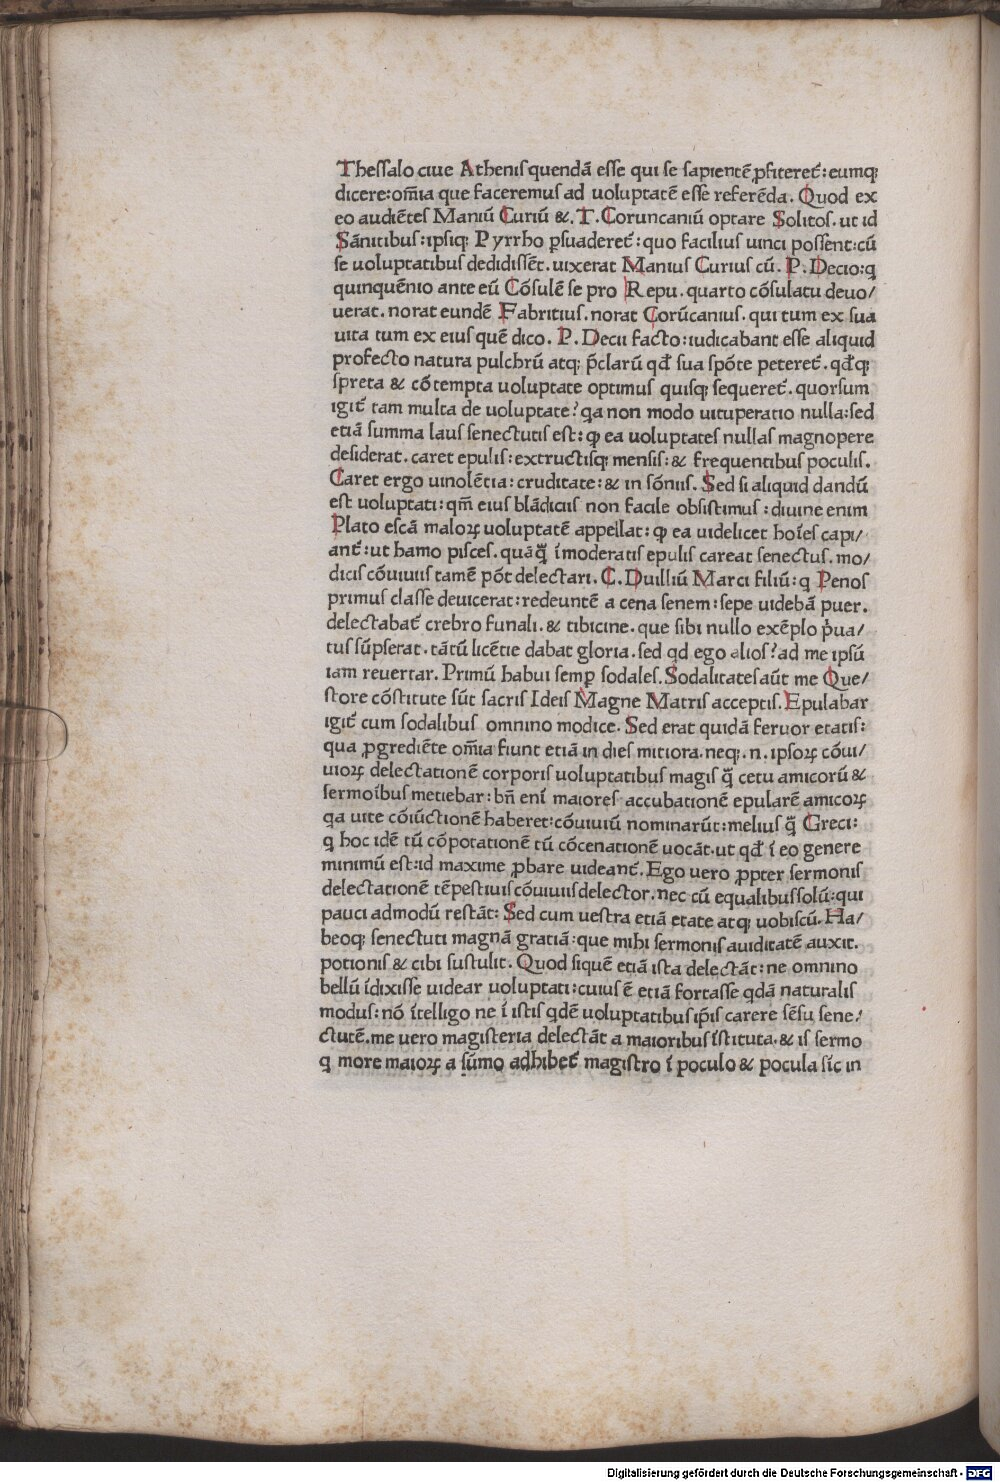 Thessalo ciue Athenis quendā esse qui se sapientē ꝓfiteret᷑: eumqꝫ
dicere: om̄ia que faceremus ad uoluptatē esse referēda. Quod ex
eo audiētes Maniū Curiū &. T. Coruncaniū optare Solitos. ut id
Sānitibus: ipsiqꝫ Pyrrho ꝑsuaderet᷑: quo facilius uinci possent: cū
se uoluptatibus dedidissēt. uixerat Manius Curius cū. P. Decio: q
quinquēnio ante eū Cōsulē se pro Repu. quarto cōsulatu deuo/
uerat. norat eundē Fabritius. norat Corūcanius. qui tum ex sua
uita tum ex eius quē dico. P. Decii facto: iudicabant esse aliquid
profecto natura pulchrū atqꝫ p̄clarū qd̄ sua spōte peteret᷑. qd̄qꝫ
spreta & cōtempta uoluptate optimus quisqꝫ sequeret᷑. quorsum
igit᷑ tam multa de uoluptate? qa non modo uituperatio nulla: sed
etiā summa laus senectutis est: ꝙ ea uoluptates nullas magnopere
desiderat. caret epulis: extructisqꝫ mensis: & frequentibus poculis.
Caret ergo uinolētia: cruditate: & in sōniis. Sed si aliquid dandū
est uoluptati: qm̄ eius blādiciis non facile obsistimus: diuine enim
Plato escā maloꝝ uoluptatē appellat: ꝙ ea uidelicet hoīes capi/
ant᷑: ut hamo pisces. quāq̄̄ īmoderatis epulis careat senectus. mo/
dicis cōuiuiis tamē pōt delectari. C. Duilliū Marci filiū: q Penos
primus classe deuicerat: redeuntē a cena senem: sepe uidebā puer.
delectabat᷑ crebro funali. & tibicine. que sibi nullo exēplo p̓ua/
tus sūpserat. tātū licētie dabat gloria. sed qd ego alios? ad me ipsū
iam reuertar. Primū habui semꝑ sodales. Sodalitates aūt me Que/
store cōstitute sūt sacris Ideis Magne Matris acceptis. Epulabar
igit᷑ cum sodalibus omnino modice. Sed erat quidā feruor etatis:
qua ꝓgrediēte om̄ia fiunt etiā in dies mitiora. neqꝫ. n. ipsoꝝ cōui/
uioꝝ delectationē corporis uoluptatibus magis q̄̄ cetu amicorū &
sermoībus metiebar: bn̄ enī maiores accubationē epularē amicoꝝ
qa uite cōiūctionē haberet: cōuiuiū nominarūt: melius q̄̄ Greci:
q hoc idē tū cōpotationē tū cōcenationē uocāt. ut qd̄ ī eo genere
minimū est: id maxime ꝓbare uideant᷑. Ego uero ꝓpter sermonis
delectationē tēpestiuis cōuiuiis delector. nec cū equalibus solū: qui
pauci admodū restāt: Sed cum uestra etiā etate atqꝫ uobiscū. Ha/
beoqꝫ senectuti magnā gratiā: que mihi sermonis auiditatē auxit.
potionis & cibi sustulit. Quod siquē etiā ista delectāt: ne omnino
bellū īdixisse uidear uoluptati: cuius ē etiā fortasse qdā naturalis
modus: nō ītelligo ne ī istis qdē uoluptatibus ip̄is carere sēsu sene/
ctutē. me uero magisteria delectāt a maioribus īstituta. & is sermo
q more maioꝝ a sūmo adhibet᷑ magistro ī poculo & pocula sīc in
Digitalisierung gefördert durch die Deutsche Forschungsgemeinschaft - DFG